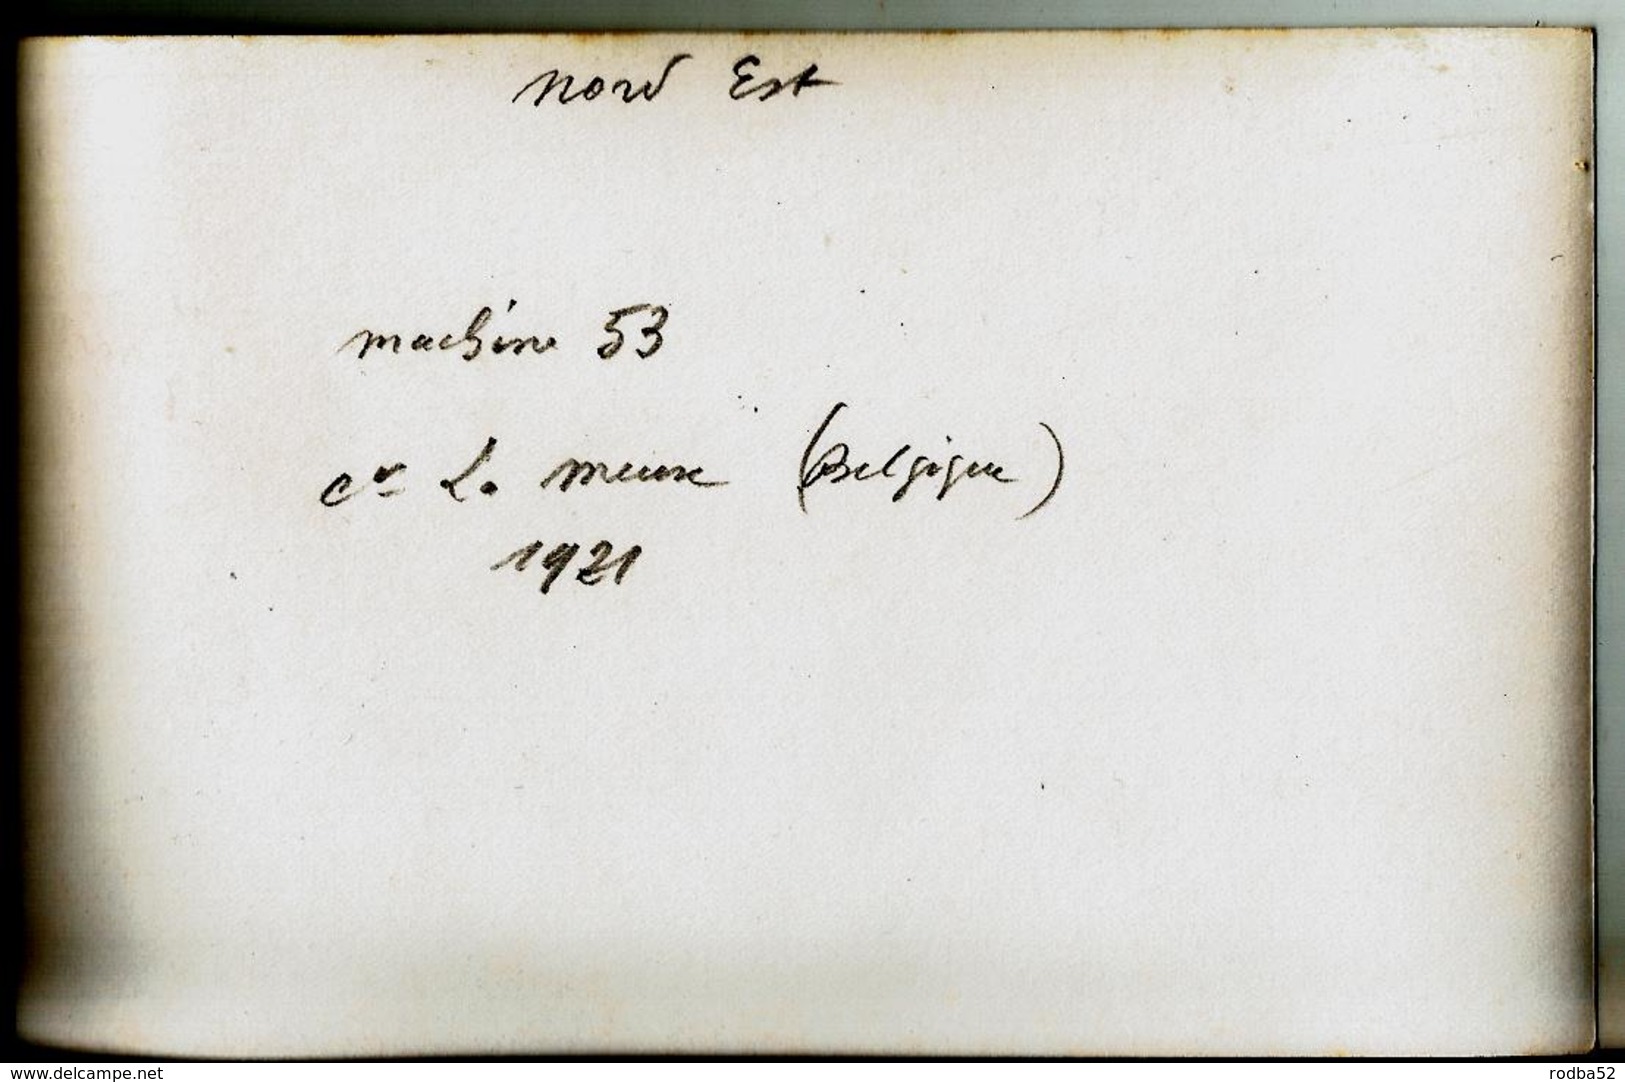 Nord Est
machine 53
cr La meuse (Belgique)
1921
www.delcampe.net
rodba52